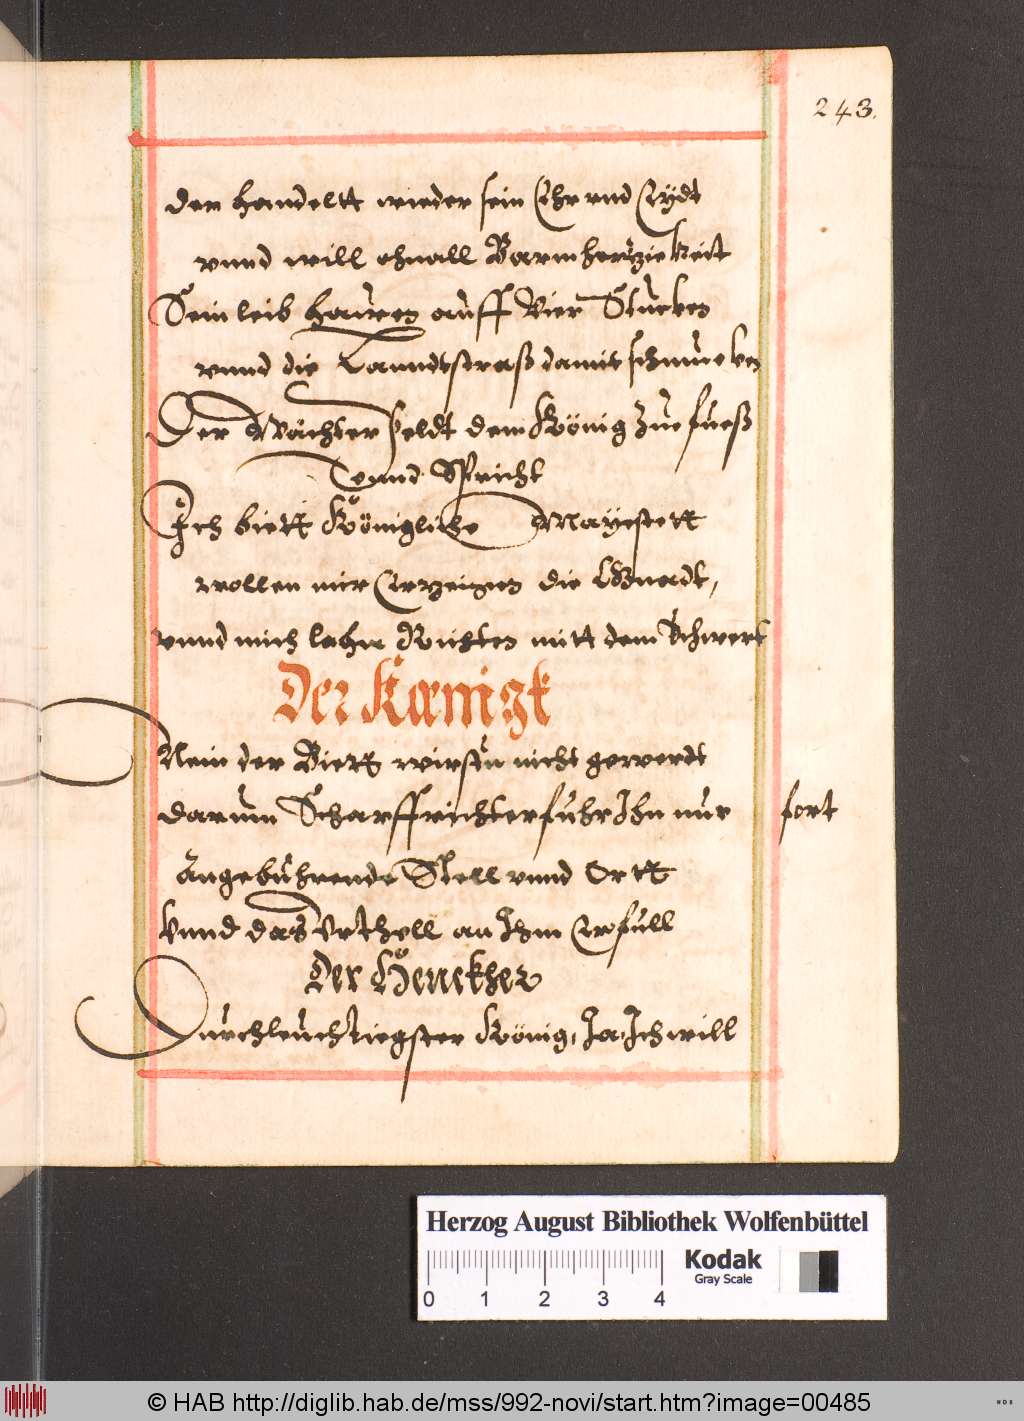 243.
der handeltt wieder sein Ehr vnd Eydt
vnnd will ohnall Barmhertziekeit
Sein leib hauen auff Vier Stucken
vnnd die Lanndtstraß damit schmucken
Der Wächter feldt dem König zue fueß
vnnd Spricht
Ich bitt Königliche Mayestett
wollen mir Erzeigen die Gnadt,
vnnd mich lahn Richten mitt dem Schwert
Der Kœnigk
Nein der Bitt wirstu nicht gewerdt
darum Scharffrichter fuhr Ihn nur fort
Angebührende Stell vnnd Ortt
Vnnd das Vrthell an Ihm Erfull
Der Henckher
Durchleuchtiegster König, Ja Ich will
Herzog August Bibliothek Wolfenbüttel
Kodak
Gray Scale
0 1 2 3 4
© HAB http://diglib.hab.de/mss/992-novi/start.htm?image=00485